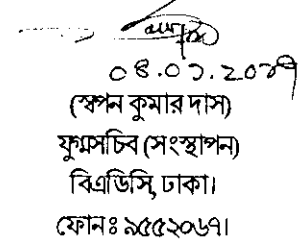 (স্বপন কুমার দাস)
যুগ্মসচিব (সংস্থাপন)
বিএডিসি, ঢাকা।
ফোনঃ ৯৫৫২০৬৭।